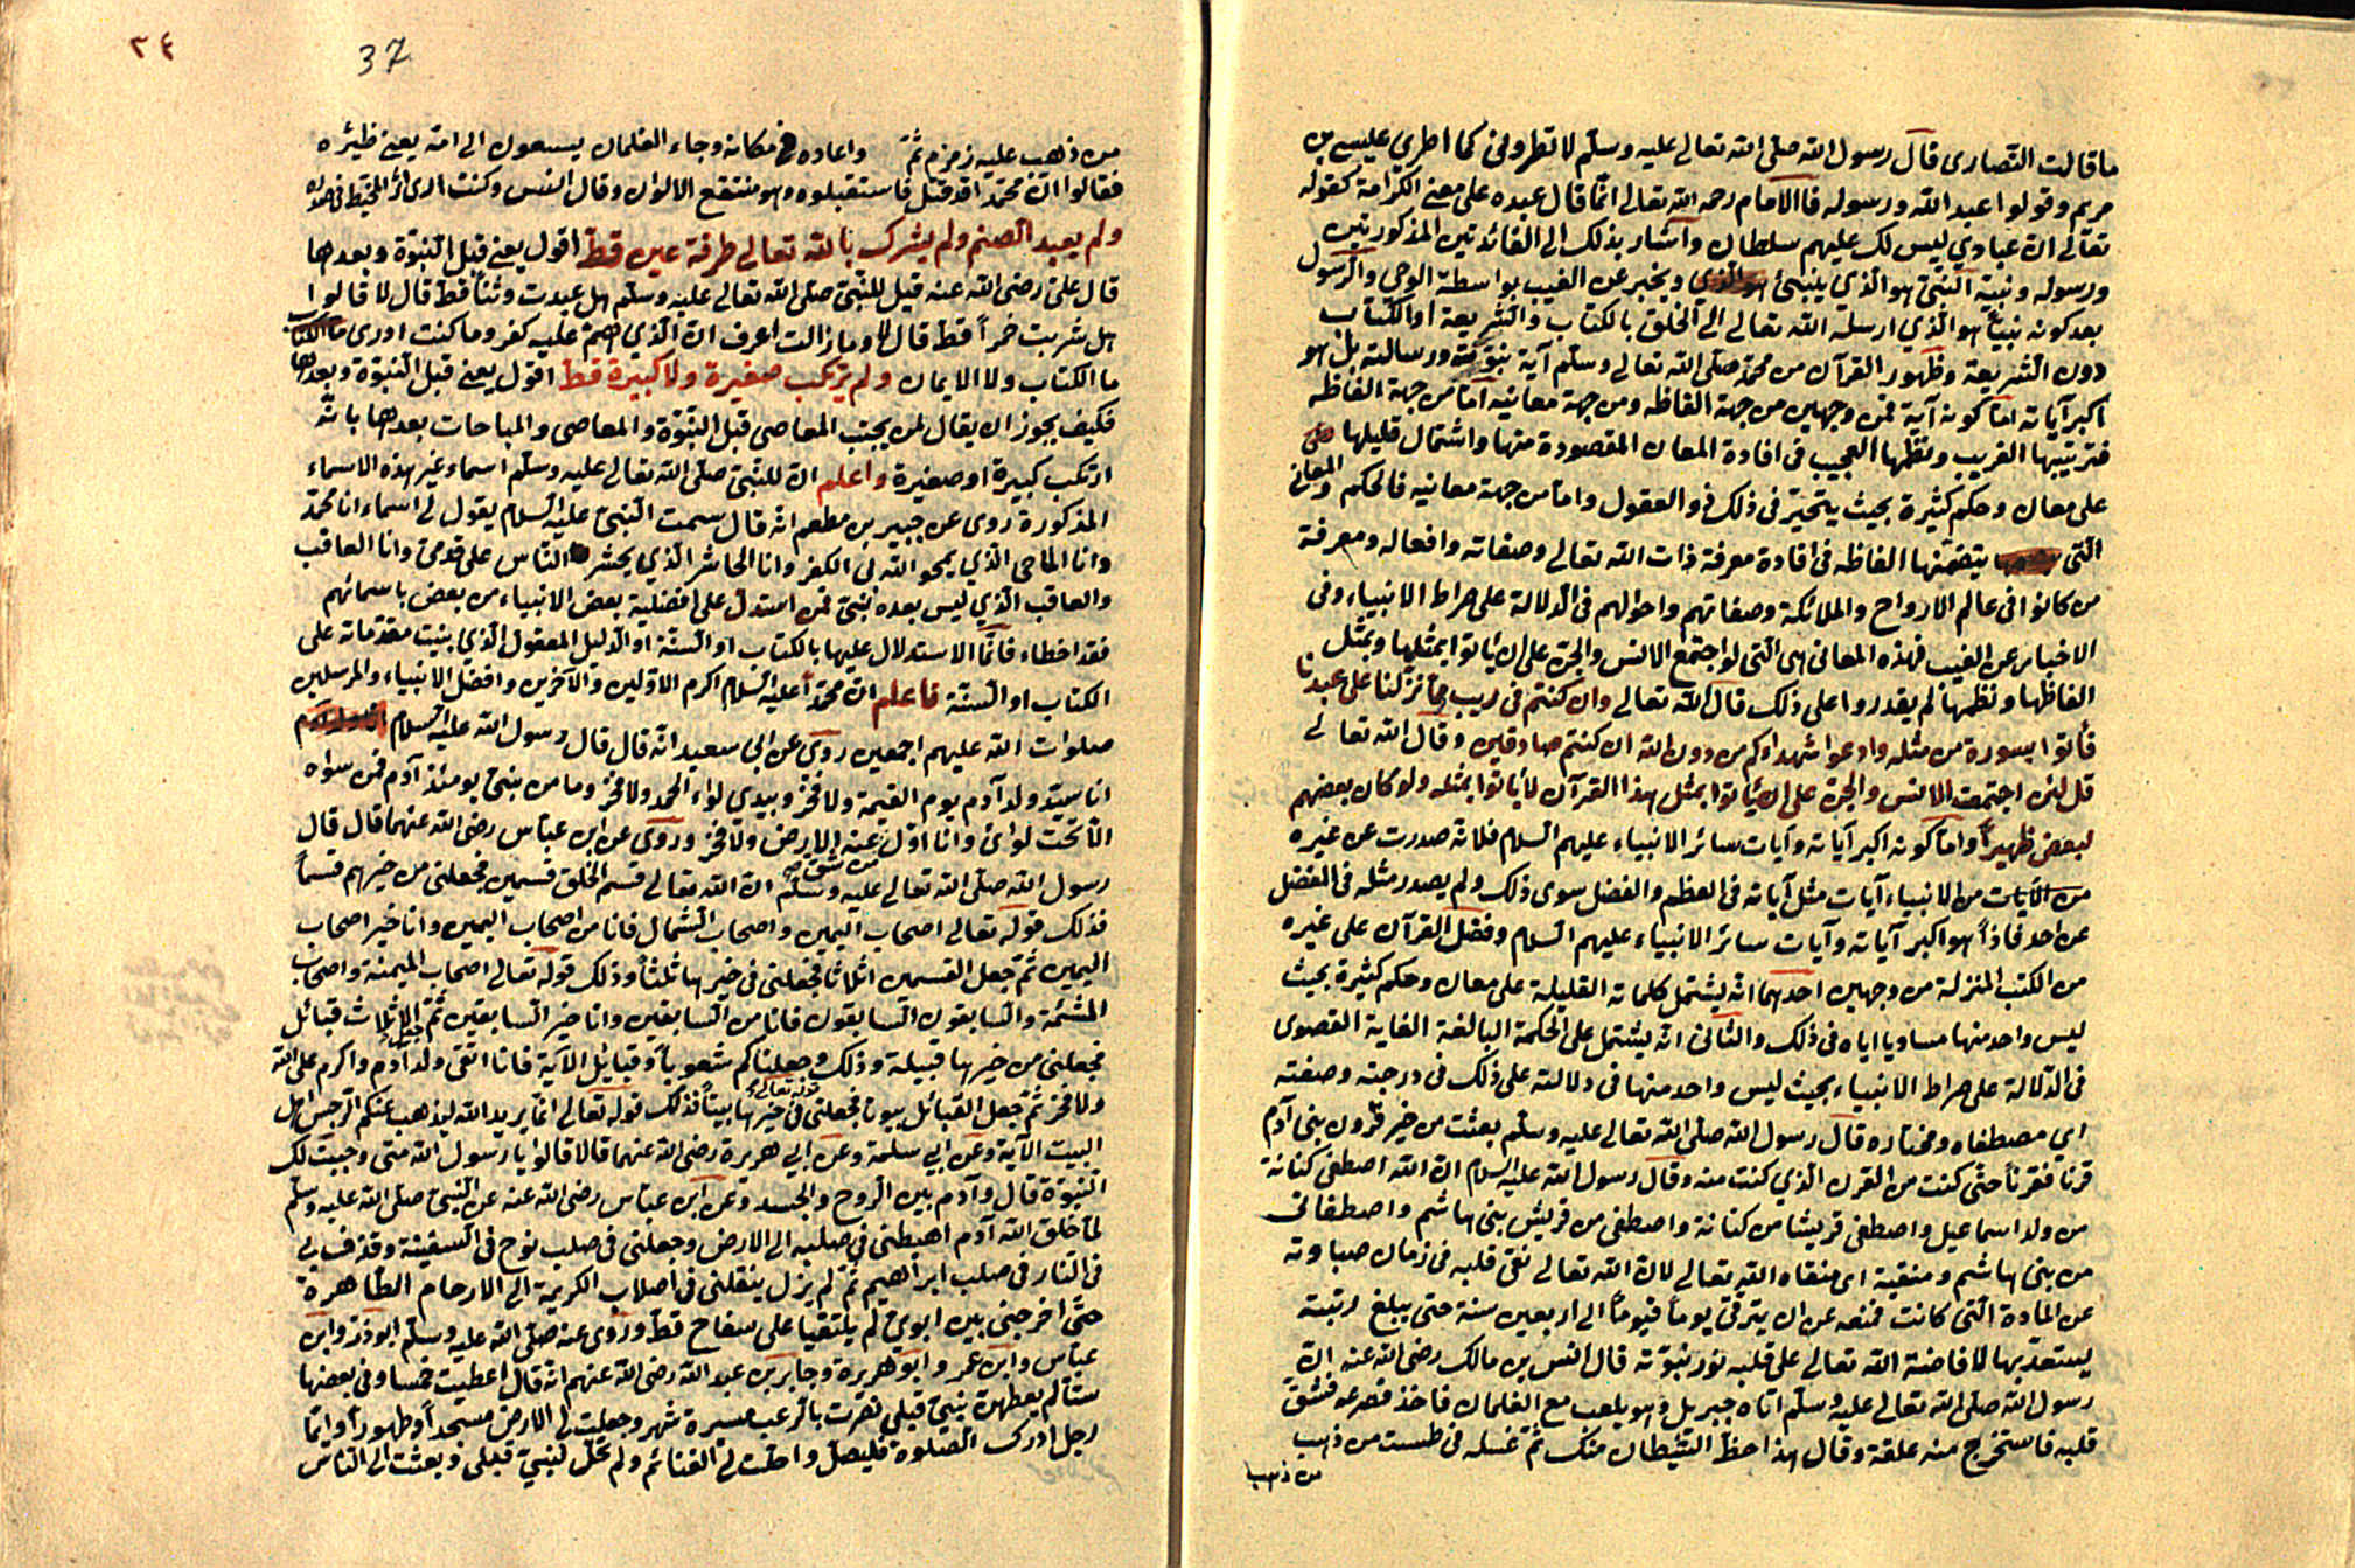 ما قالت النصارى قال رسول الله صلى الله تعالى عليه وسلم لا تطروني كما اطري عيسى بن
مريم وقولوا عبد الله ورسوله فالامام رحمه الله تعالى انما قال عبده على معنى الكرامة كقوله
تعالى ان عبادي ليس لك عليهم سلطان واشار بذلك الى الفائدتين المذكورتين
ورسوله ونبيه النبي هو الذي ينبئ ويخبر عن الغيب بواسطة الوحي والرسول
بعد كونه نبياً هو الذي ارسله الله تعالى الى الخلق بالكتاب والشريعة او الكتاب
دون الشريعة وظهور القرآن من محمد صلى الله تعالى وسلم آية نبوته ورسالته بل هو
اكبر آياته اما كونه آية فمن وجهين من جهة الفاظه ومن جهة معانيه اما من جهة الفاظه
فترتيبها الغريب ونظمها العجيب في افادة المعان المقصودة منها واشتمال قليلها على
على معان وحكم كثيرة بحيث يتحير في ذلك ذو العقول واما من جهة معانيه فالحكم والمعاني
التي يتضمنها الفاظه في افادة معرفة ذات الله تعالى وصفاته وافعاله ومعرفة
من كانوا في عالم الارواح والملائكة وصفاتهم واحوالهم في الدلالة على صراط الانبياء وفي
الاخبار عن الغيب فهذه المعاني هي التي لو اجتمع الانس والجن على ان ياتوا بمثلها وبمثل
الفاظها ونظمها لم يقدروا على ذلك قال الله تعالى وان كنتم في ريب مما نزلنا على عبدنا
فأتوا بسورة من مثله وادعوا شهداءكم من دون الله ان كنتم صادقين وقال الله تعالى
قل لئن اجتمعت الانس والجن على ان ياتوا بمثل هذا القرآن لا يأتوا بمثله ولو كان بعضهم
لبعض ظهيراً واما كونه اكبر آياته وآيات سائر الانبياء عليهم السلام فلانه صدرت عن غيره
من الآيات من الانبياء آيات مثل آياته في العظم والفضل سوى ذلك ولم يصدر مثله في الفضل
عن احد فاذاً هو اكبر آياته وآيات سائر الانبياء عليهم السلام وفضل القرآن على غيره
من الكتب المنزلة من وجهين احدهما انه يشتمل كلماته القليلة على معان وحكم كثيرة بحيث
ليس واحد منها مساويا اياه في ذلك والثاني انه يشتمل على الحكمة البالغة الغاية القصوى
في الدلالة على صراط الانبياء بحيث ليس واحد منها في دلالته على ذلك في درجته وصفته
اي مصطفاه ومختاره قال رسول الله صلى الله تعالى عليه وسلم بعثت من خير قرون بني آدم
قرنا فقرناً حتى كنت من القرن الذي كنت منه وقال رسول الله عليه السلام ان الله اصطفى كنانة
من ولد اسماعيل واصطفى قريشا من كنانة واصطفى من قريش بني هاشم واصطفاني
من بني هاشم ومنقيه اي منقاه الله تعالى لان الله تعالى نقى قلبه في زمان صباوته
عن المادة التي كانت تمنعه عن ان يترقى يوماً فيوماً الى اربعين سنة حتى يبلغ رتبة
يستعد بها لافاضة الله تعالى على قلبه نور نبوته قال انس بن مالك رضي الله عنه ان
رسول الله صلى الله تعالى عليه وسلم اتاه جبريل وهو يلعب مع الغلمان فاخذ فصرعه فشق
قلبه فاستخرج منه علقة وقال هذا حظ الشيطان منك ثم غسله في طست من ذهب
من ذهب
٣٤
37
من ذهب عليه زمزم ثم واعاده في مكانه وجاء الغلمان يسعون الى امه يعني ظيره
فقالوا ان محمدا قد قتل فاستقبلوه وهو منتقع الالوان وقال انس وكنت ارى اثر المخيط في صدره
ولم يعبد الصنم ولم يشرك بالله تعالى طرفة عين قط اقول يعني قبل النبوة وبعدها
قال علي رضي الله عنه قيل للنبي صلى الله تعالى عليه وسلم هل عبدت وثناً قط قال لا قالوا
هل شربت خمراً قط قال لا وما زالت اعرف ان الذي هم عليه كفر وما كنت ادرى ما الكتاب
ما الكتاب ولا الايمان ولم يرتكب صغيرة ولا كبيرة قط اقول يعني قبل النبوة وبعدها
فكيف يجوز ان يقال لمن يجتنب المعاصي قبل النبوة والمعاصي والمباحات بعدها بانه
ارتكب كبيرة او صغيرة واعلم ان للنبي صلى الله تعالى عليه وسلم اسماء غير هذه الاسماء
المذكورة روى عن جبير بن مطعم انه قال سمعت النبي عليه السلام يقول لي اسماء انا محمد
وانا الماحي الذي يمحو الله بي الكفر وانا الحاشر الذي يحشر الناس على قدمي وانا العاقب
والعاقب الذي ليس بعده نبي فمن استدل على افضلية بعض الانبياء من بعض باسمائهم
فقد اخطاء فانما الاستدلال عليها بالكتاب او السنة او الدليل المعقول الذي بنيت مقدماته على
الكتاب او السنة فاعلم ان محمداً عليه السلام اكرم الاولين والآخرين وافضل الانبياء والمرسلين
صلوات الله عليهم اجمعين روى عن ابي سعيد انه قال قال رسول الله عليه السلام
انا سيد ولد آدم يوم القيمة ولا فخر وبيدي لواء الحمد ولا فخر وما من نبي يومئذ آدم فمن سواه
الا تحت لوائي وانا اول من تنشق عنه الارض ولا فخر وروى عن ابن عباس رضي الله عنهما قال قال
رسول الله صلى الله تعالى عليه وسلم ان الله تعالى قسم الخلق قسمين فجعلني من خيرهم قسماً
فذلك قوله تعالى اصحاب اليمين واصحاب الشمال فانا من اصحاب اليمين وانا خير اصحاب
اليمين ثم جعل القسمين اثلاثا فجعلني في خيرها ثلثاً وذلك قوله تعالى اصحاب الميمنة واصحاب
المشئمة والسابقون السابقون فانا من السابقين وانا خير السابقين ثم جعل الاثلاث قبائل
فجعلني من خيرها قبيلة وذلك قوله تعالى وجعلناكم شعوباً وقبائل الآية فانا اتقى ولد آدم واكرم على الله
ولا فخر ثم جعل القبائل بيوتا فجعلني في خيرها بيتاً فذلك قوله تعالى انما يريد الله ليذهب عنكم الرجس اهل
البيت الآية وعن ابي سلمة وعن ابي هريرة رضي الله عنهما قالا قالوا يا رسول الله متى وجبت لك
النبوة قال وآدم بين الروح والجسد وعن ابن عباس رضي الله عنه عن النبي صلى الله عليه وسلم
لما خلق الله آدم اهبطني في صلبه الى الارض وجعلني في صلب نوح في السفينة وقذف بي
في النار في صلب ابراهيم ثم لم يزل ينقلني في اصلاب الكريمة الى الارحام الطاهرة
حتى اخرجني بين ابوي لم يلتقيا على سفاح قط وروى عنه صلى الله عليه وسلم ابوذر وابن
عباس وابن عمر وابو هريرة وجابر بن عبد الله رضي الله عنهم انه قال اعطيت خمسا وفي بعضها
ستا لم يعطهن نبي قبلي نصرت بالرعب مسيرة شهر وجعلت لي الارض مسجداً وطهوراً وايما
رجل ادرك الصلوة فليصل واحلت لي الغنائم ولم تحل لنبي قبلي وبعثت الى الناس